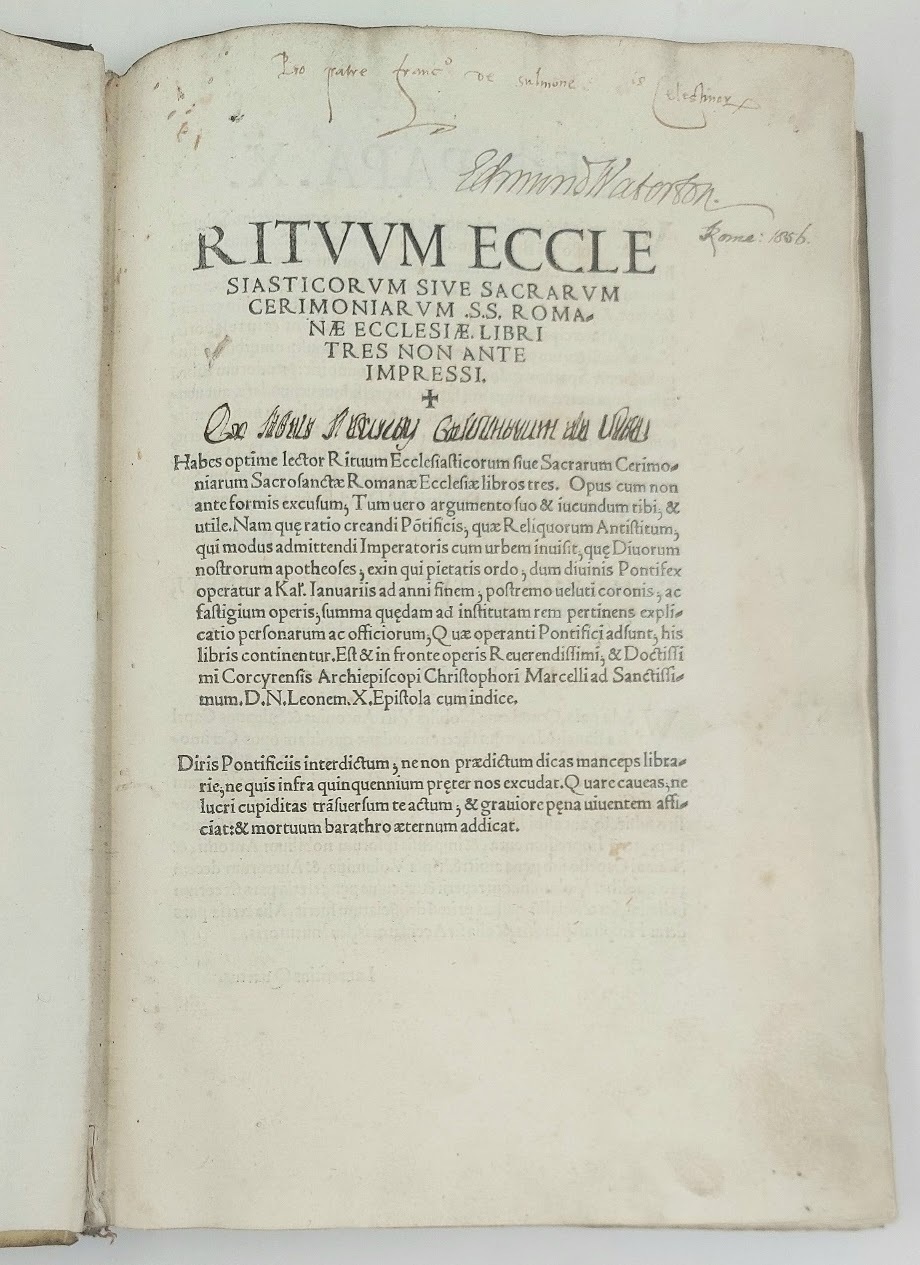 Pro patre franc° de sulmone is Celestinor
Edmund Waterton.
Rome: 1856.
RITVVM ECCLE
SIASTICORVM SIVE SACRARVM
CERIMONIARVM .S.S. ROMA-
NÆ ECCLESIÆ. LIBRI
TRES NON ANTE
IMPRESSI.
✚
Habes optime lector Rituum Ecclesiasticorum siue Sacrarum Cerimo-
niarum Sacrosanctæ Romanæ Ecclesiæ libros tres. Opus cum non
ante formis excusum, Tum uero argumento suo & iucundum tibi, &
utile. Nam quę ratio creandi Põtificis, quæ Reliquorum Antistitum,
qui modus admittendi Imperatoris cum urbem inuisit, quę Diuorum
nostrorum apotheoses, exin qui pietatis ordo, dum diuinis Pontifex
operatur a Kal. Ianuariis ad anni finem, postremo ueluti coronis, ac
fastigium operis, summa quędam ad institutam rem pertinens expli-
catio personarum ac officiorum, Quæ operanti Pontifici adsunt, his
libris continentur. Est & in fronte operis Reuerendissimi, & Doctissi
mi Corcyrensis Archiepiscopi Christophori Marcelli ad Sanctissi-
mum. D. N. Leonem. X. Epistola cum indice.
Diris Pontificiis interdictum, ne non prædictum dicas manceps libra-
rie, ne quis infra quinquennium pręter nos excudat. Quare caueas, ne
lucri cupiditas trãsuersum te actum, & grauiore pęna uiuentem affi-
ciat: & mortuum barathro æternum addicat.